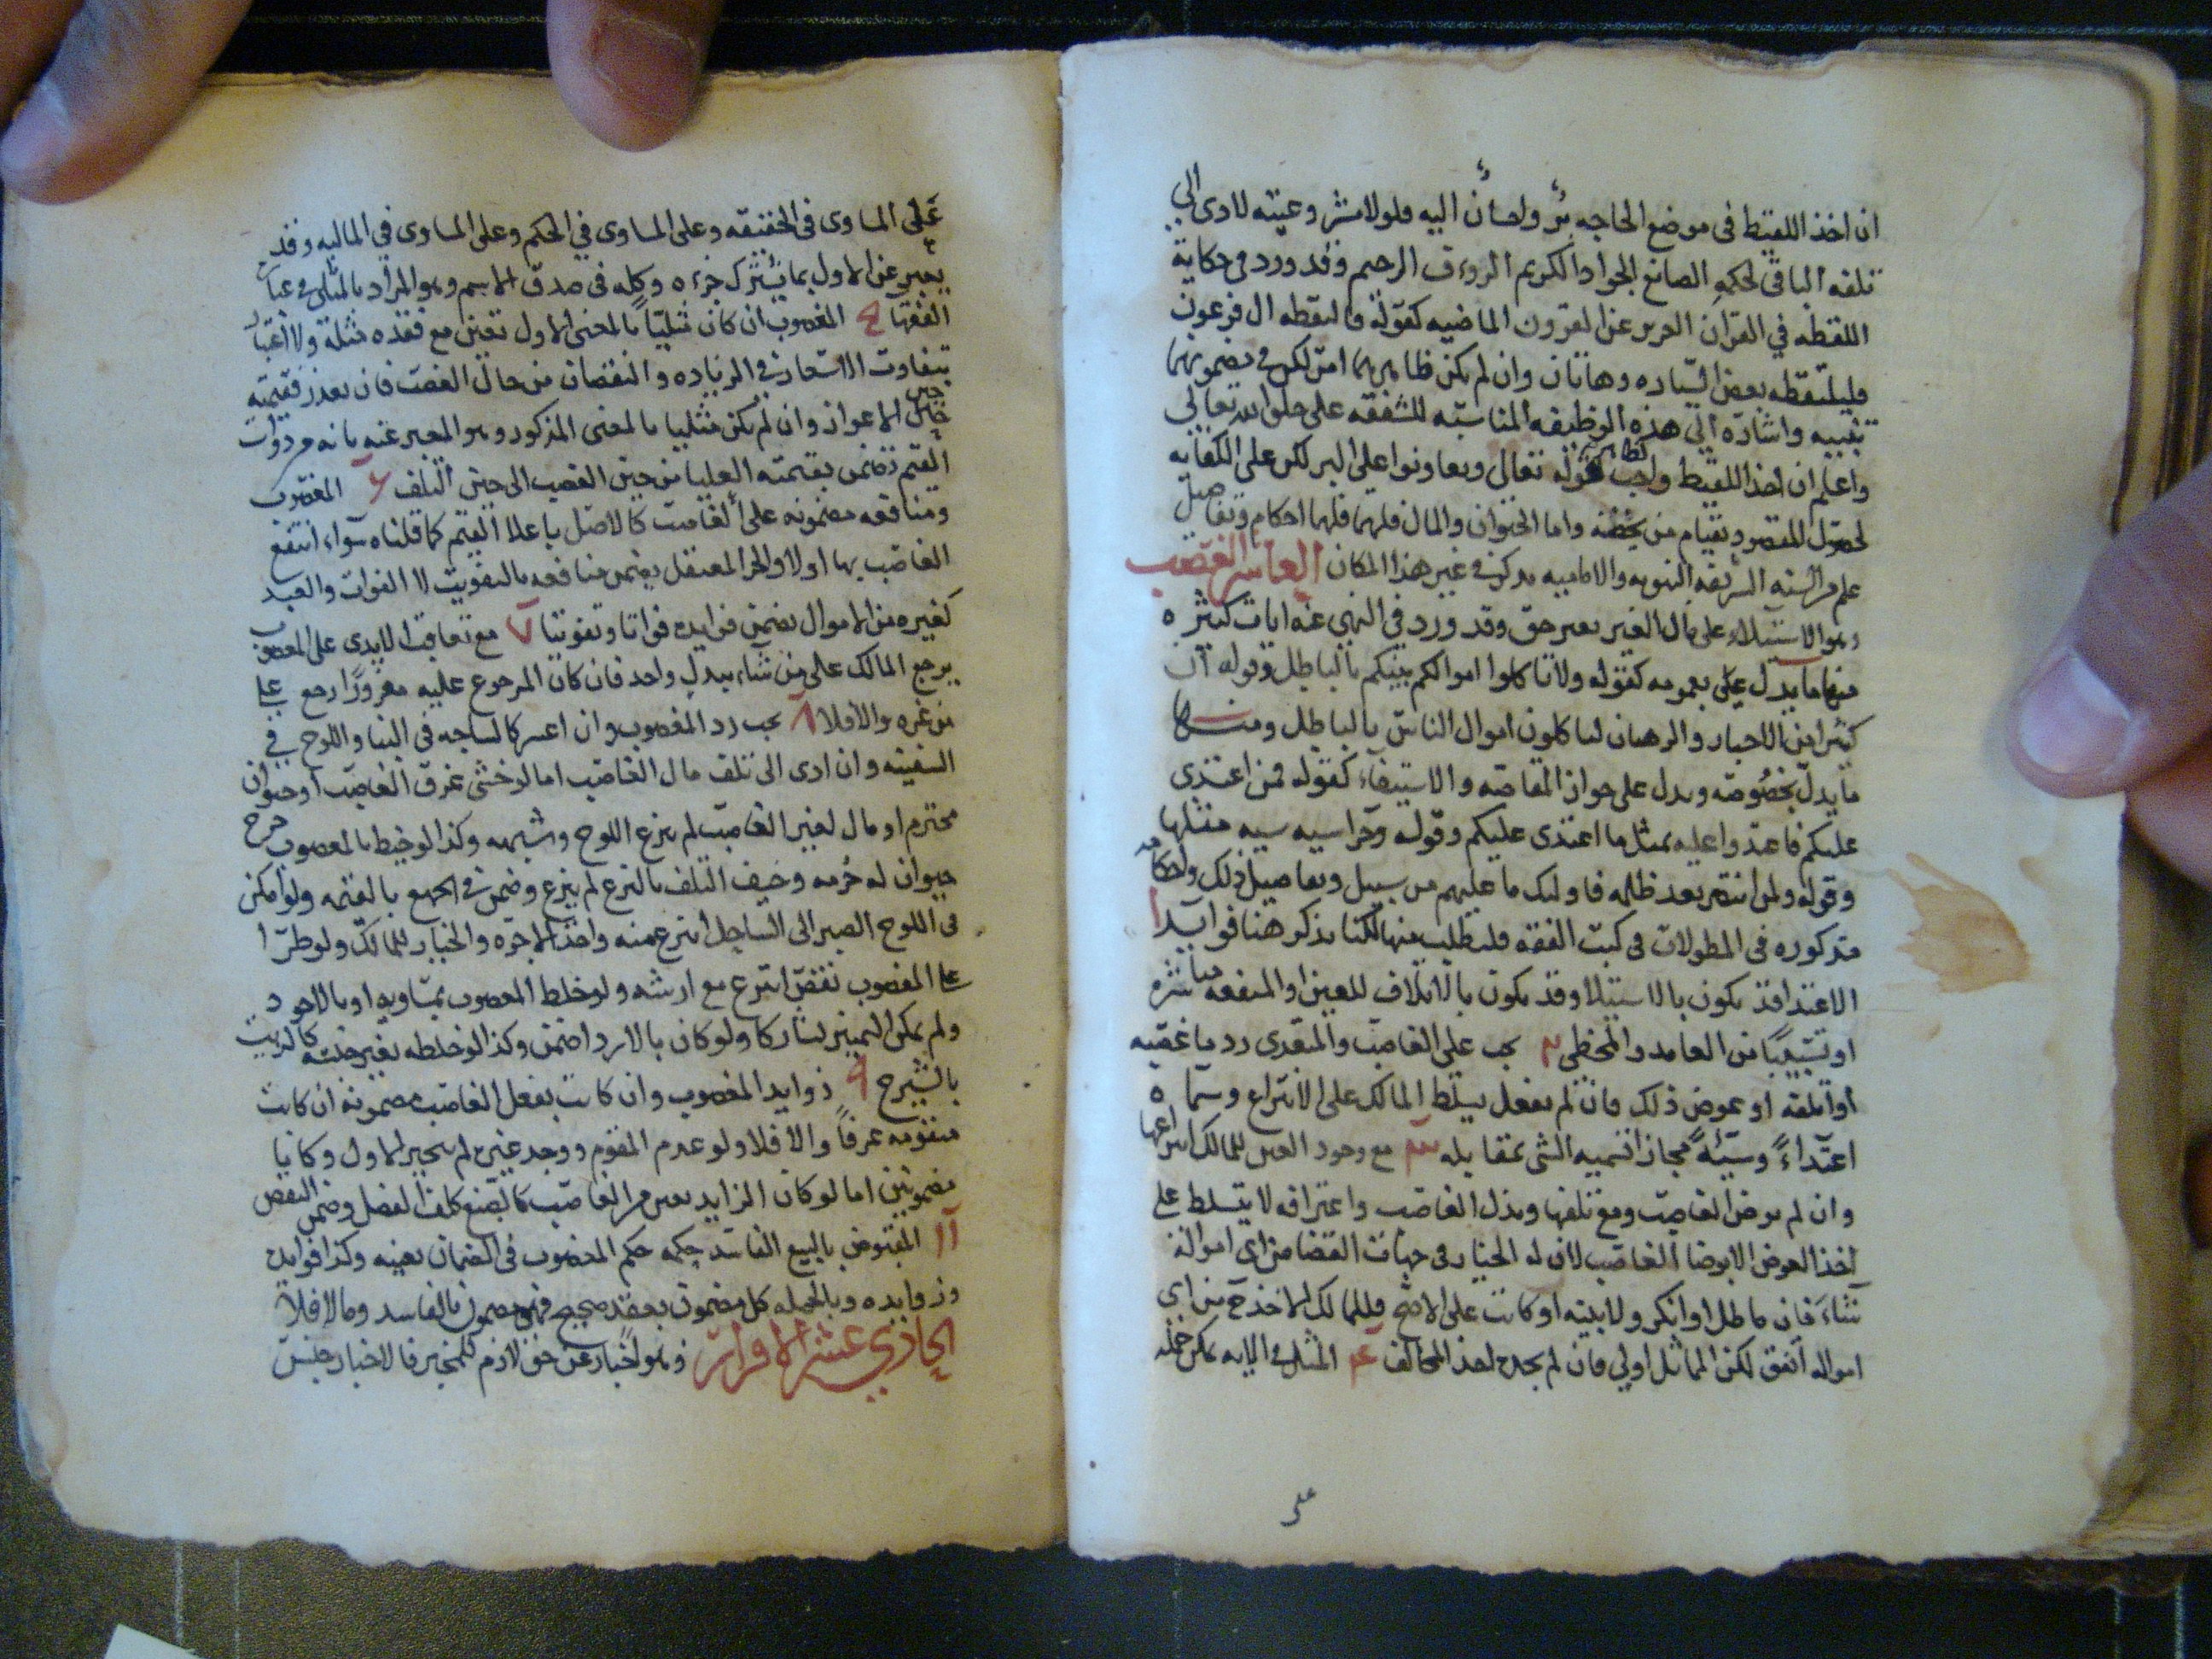 ان اخذ اللقيط فى موضع الحاجه بر واحسان اليه فلولا مشروعيته لادى الى
تلفه النافى لحكمه الصانع الجواد الكريم الروءف الرحيم وقد ورد فى حكاية
اللقطه في القران العزيز عن القرون الماضيه كقوله فالتقطه ال فرعون
وليلتقطه بعض السياره وهاتان وان لم يكن ظاهرهما امرا لكن في مضمونهما
تنبيه واشاره الى هذه الوظيفه المناسبه للشفقه على خلق الله تعالى
واعلم ان اخذ اللقيط واجب لظاهر قوله تعالى وتعاونوا على البر لكن على الكفايه
لحصول المقصود بقيام من يحضنه واما الحيوان والمال فلهما احكام وتفاصيل
علم من السنه الشريفه النبويه والاماميه يذكر في غير هذا المكان العاشر الغصب
وهو الاستيلاء على مال الغير بغير حق وقد ورد في النهي عنه ايات كثيره
منها ما يدل على بعمومه كقوله ولا تاكلوا اموالكم بينكم بالباطل وقوله ان
كثيرا من الاحبار والرهبان لياكلون اموال الناس بالباطل ومنها
ما يدل بخصوصه ويدل على جواز المقاصه والاستيفاء كقوله فمن اعتدى
عليكم فاعتدوا عليه بمثل ما اعتدى عليكم وقوله وجزا سيه سيه مثلها
وقوله ولمن انتصر بعد ظلمه فاولئك ما عليهم من سبيل وتفاصيل ذلك واحكامه
مذكوره فى المطولات فى كتب الفقه فليطلب منها لكنا نذكر هنا فوايد ا
الاعتدا قد يكون بالاستيلا وقد يكون بالاتلاف للعين او المنفعه مباشره
او تسبيبا من العامد والمخطى ٢ يجب على الغاصب والمتعدى رد ما غصبه
او اتلفه او عوض ذلك فان لم يفعل يسلط المالك على الانتزاع وسماه
اعتداءً وسيئةً مجازا تسميه الشى بمقابله ٣ مع وجود العين للمالك انتزاعها
وان لم يرض الغاصب ومع تلفها وبذل الغاصب واعترافه لا يتسلط على
اخذ العوض الا برضا الغاصب لان له الخيار فى جهات القضا من اى امواله
شاء فان ماطل او انكر ولا بينه او كانت على الاصح فللمالك الاخذ من اى
امواله اتفق لكن المماثل اولى فان لم يجده اخذ المخالف ٤ المثل فى الايه يمكن حمله
على
على المساوى فى الحقيقه وعلى المساوى في الحكم وعلى المساوى في الماليه وقد
يعبر عن الاول بما يشترك جزءه وكله فى صدق الاسم وهو المراد بالمثلى في عبارة
الفقها ٥ المغصوب ان كان مثليا بالمعنى الاول تعين مع فقده مثله ولا اعتبار
بتفاوت الاسعار في الزياده والنقصان من حال الغصب فان تعذر فقيمته
حين الاعواز وان لم يكن مثليا بالمعنى المذكور وهو المعبر عنه بانه من ذوات
القيم تضمن بقيمته العليا من حين الغصب الى حين التلف ٦ المغصوب
ومنافعه مضمونه على الغاصب كالاصل باعلا القيم كما قلناه سواء انتفع
الغاصب بها اولا والحر المعتقل يضمن منافعه بالتفويت لا الفوات والعبد
كغيره من الاموال يضمن فوايده فواتا وتفويتا ٧ مع تعاقب الايدى على المغصوب
يرجع المالك على من شاء ببدل واحد فان كان المرجوع عليه مغرورًا رجع على
من غره والا فلا ٨ يجب رد المغصوب وان اعسر كالساجه فى البنا واللوح في
السفينه وان ادى الى تلف مال الغاصب اما لو خشى غرق الغاصب او حيوان
محترم او مال لغير الغاصب لم ينزع اللوح وشبهه وكذا لو خيط بالمغصوب جرح
حيوان له حُرمه وخيف التلف بالنزع لم ينزع وضمن في الجميع بالقيمه ولو امكن
فى اللوح الصبر الى الساحل انتزع منه واخذ الاجره والخيار للمالك ولو طرا
على المغصوب نقص انتزع مع ارشه ولو خلط المغصوب بمساويه او بالاجود
ولم يمكن التمييز تشاركا ولو كان بالاردا ضمن وكذا لو خلطه بغير جنسه كالزيت
بالشيرج ٩ زوايد المغصوب وان كانت بفعل الغاصب مضمونه ان كانت
متقومه عرفًا والا فلا ولو عدم المقوم ووجد غيره لم ينجبر الاول وكانا
مضمونين اما لو كان الزايد بعين من الغاصب كالصبغ كلف الفصل وضمن النقص
١٠ المقبوض بالبيع الفاسد حكمه حكم المغصوب فى الضمان بعينه وكذا فوايده
وزوايده وبالجمله كل مضمون بعقد صحيح فهو مضمون بالفاسد وما لا فلا
الحادي عشر الاقرار وهو اخبار عن حق لازم للمخبر فالاخبار جنس